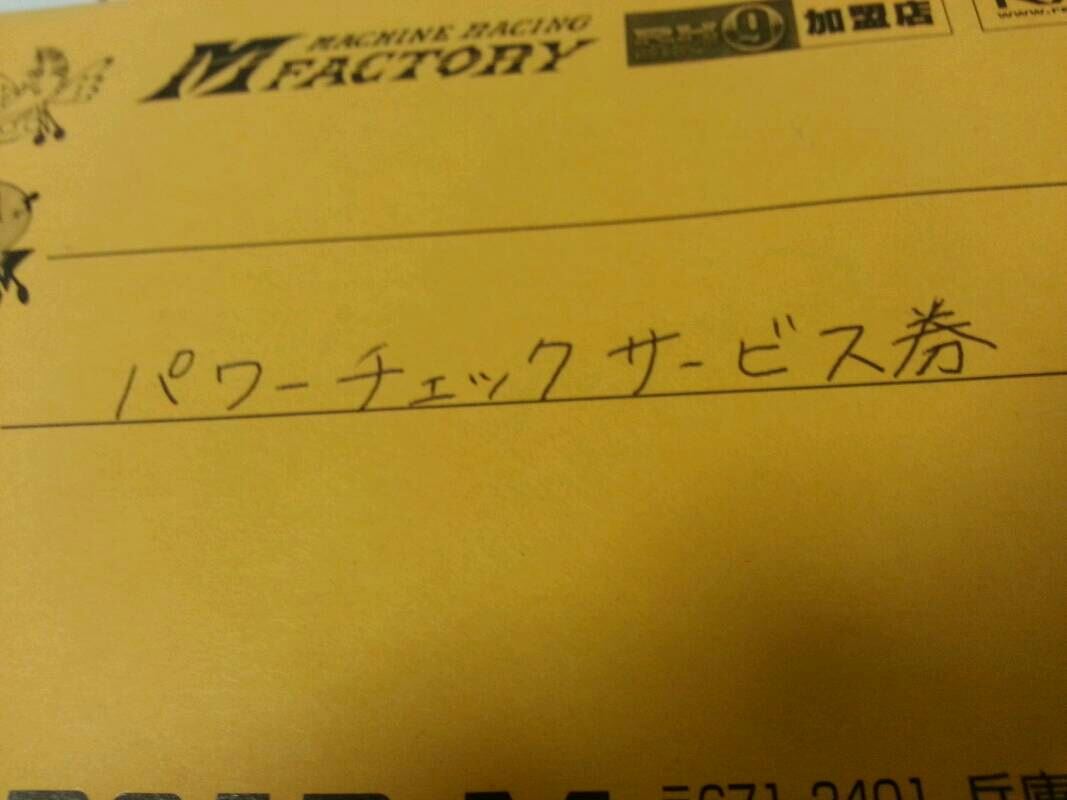 MACHINE RACING
M FACTORY
RH9 加盟店
パワーチェックサービス券
〒671-2401 兵庫